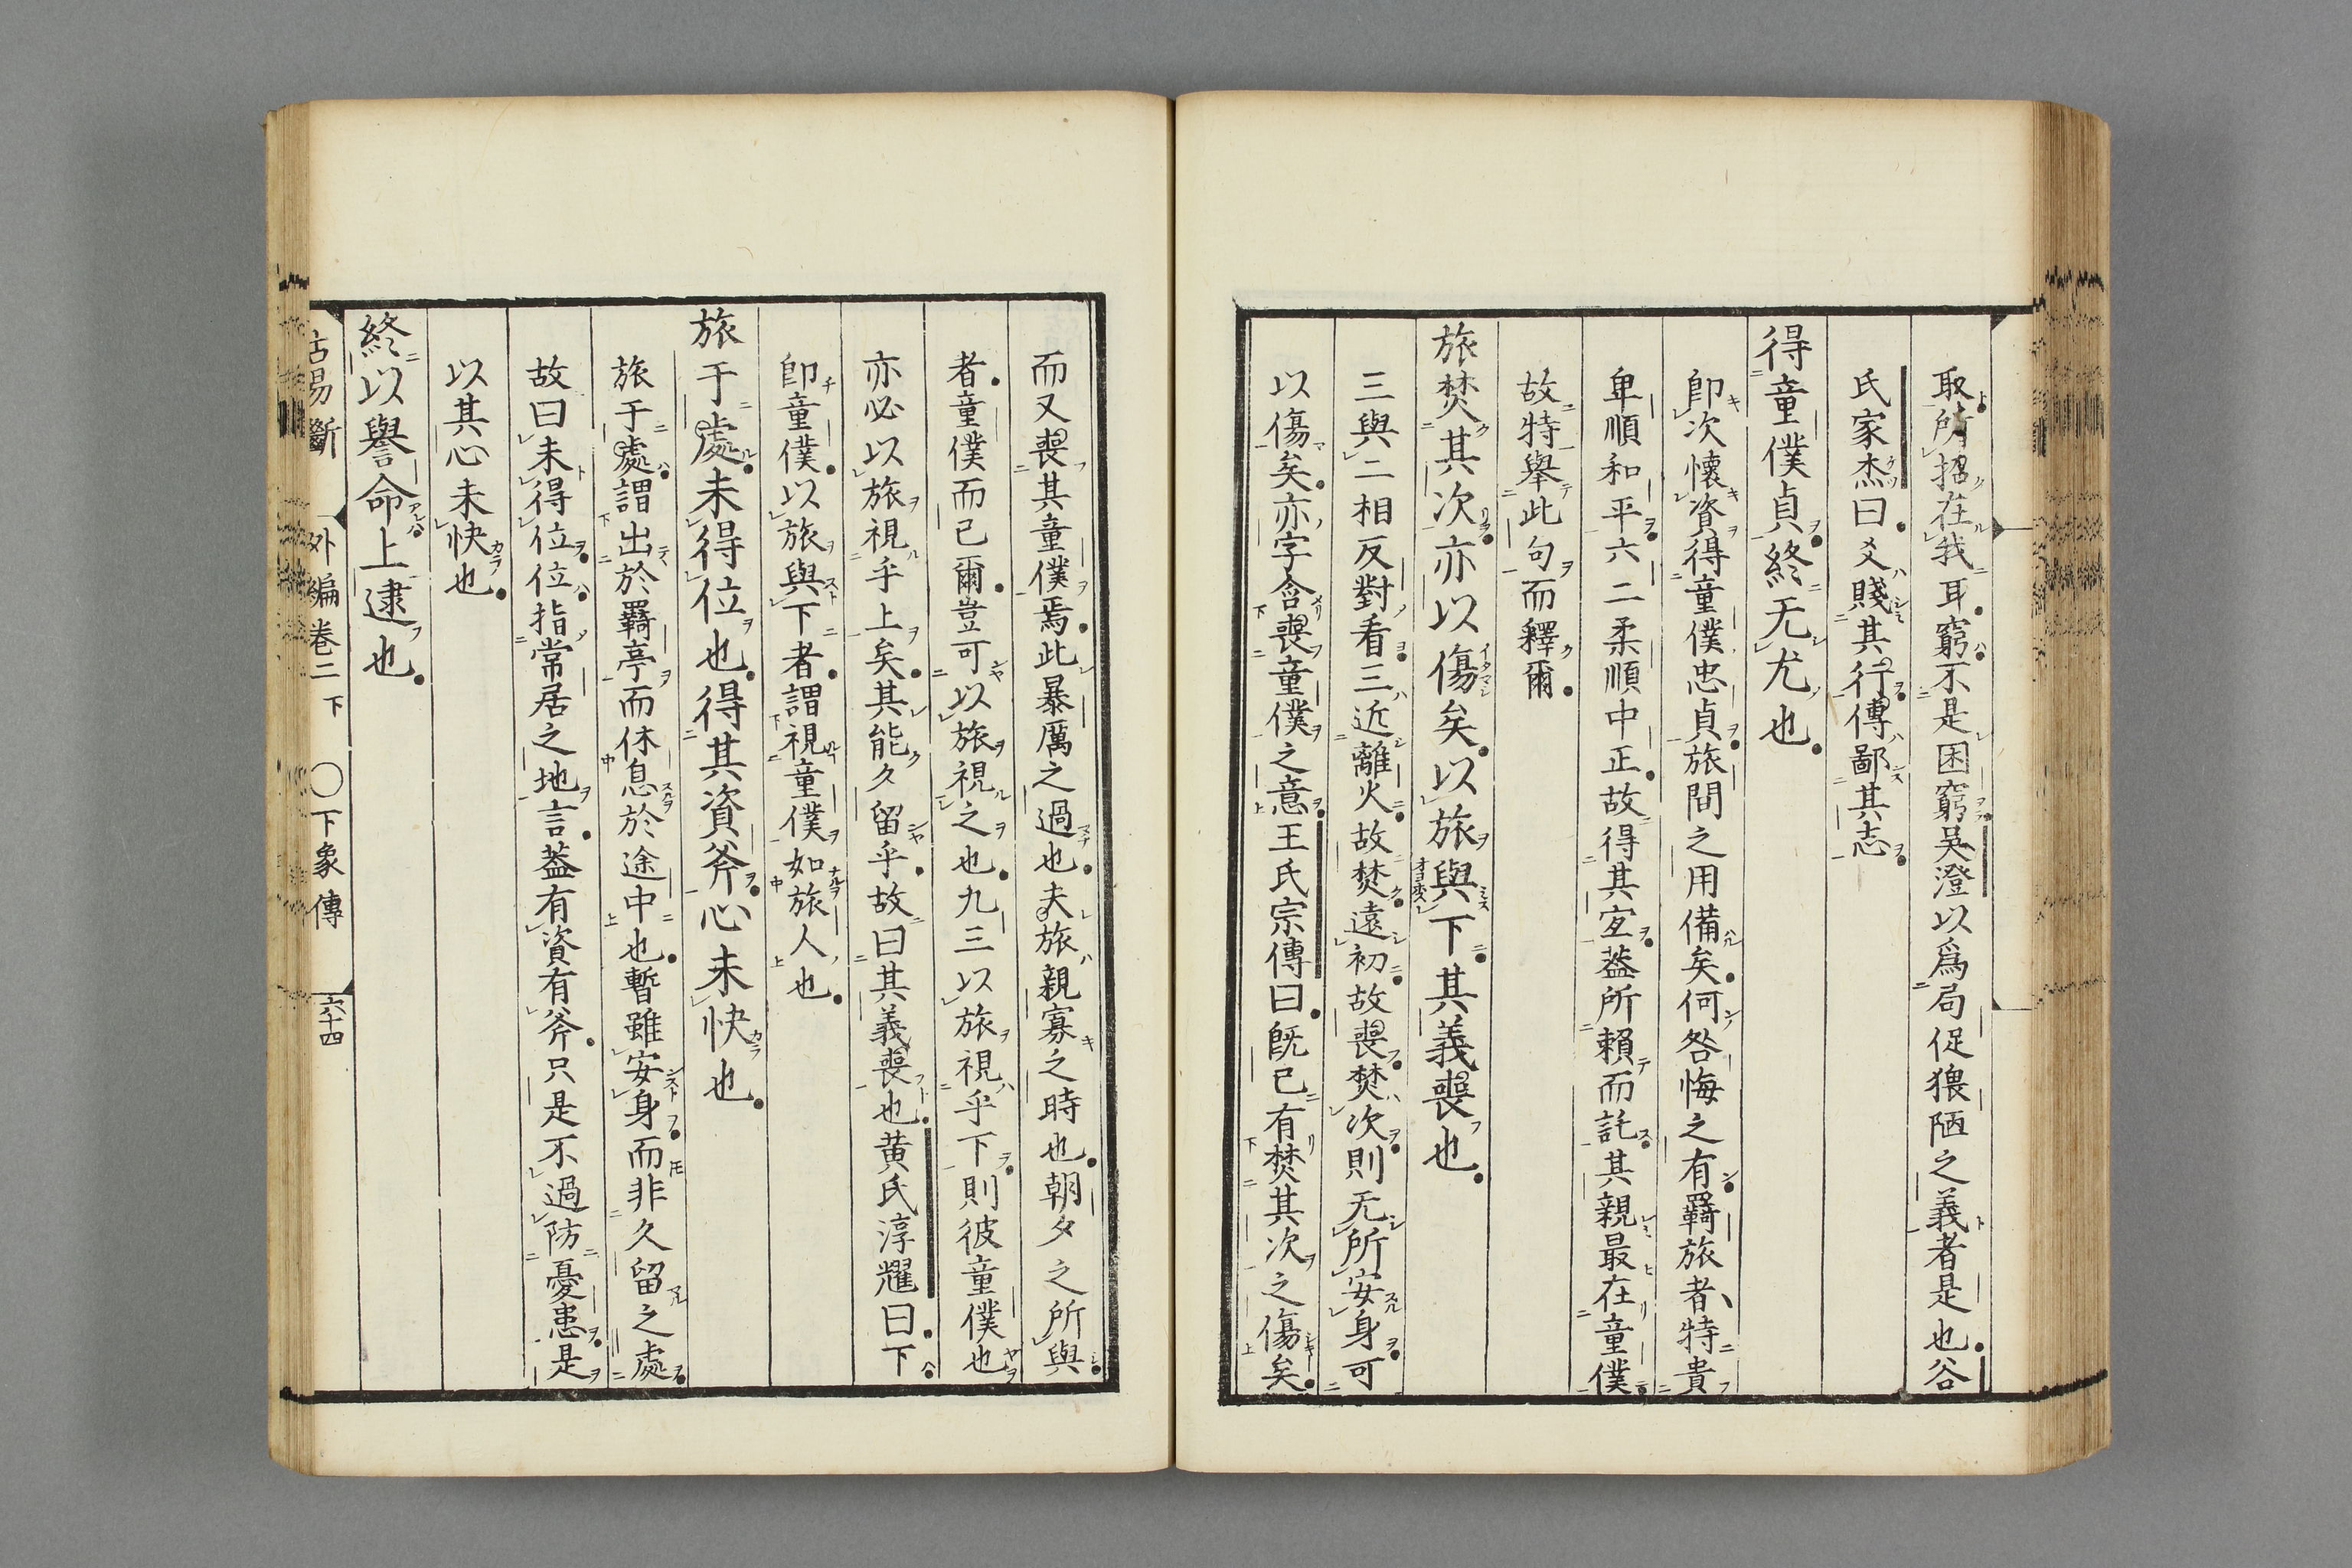 取所招在我耳窮不是困窮吳澄以爲局促猥陋之義者是也谷
氏家杰曰爻賤其行傳鄙其志
得童僕貞終无尤也
卽次懷資得童僕忠貞旅間之用備矣何咎悔之有羇旅者特貴
卑順和平六二柔順中正故得其宐葢所賴而託其親最在童僕
故特舉此句而釋爾
旅焚其次亦以傷矣以旅與下其義喪也
三與二相反對看三近離火故焚遠初故喪焚次則无所安身可
以傷矣亦字含喪童僕之意王氏宗傳曰旣已有焚其次之傷矣
而又喪其童僕焉此暴厲之過也夫旅親寡之時也朝夕之所與
者童僕而已爾豈可以旅視之也九三以旅視乎下則彼童僕也
亦必以旅視乎上矣其能久留乎故曰其義喪也黄氏淳耀曰下
卽童僕以旅與下者謂視童僕如旅人也
旅于處未得位也得其資斧心未快也
旅于處謂出於羇亭而休息於途中也暫雖安身而非久留之處
故曰未得位位指常居之地言葢有資有斧只是不過防憂患是
以其心未快也
終以譽命上逮也
古易斷 外編卷二下 〇下象傳 六十四